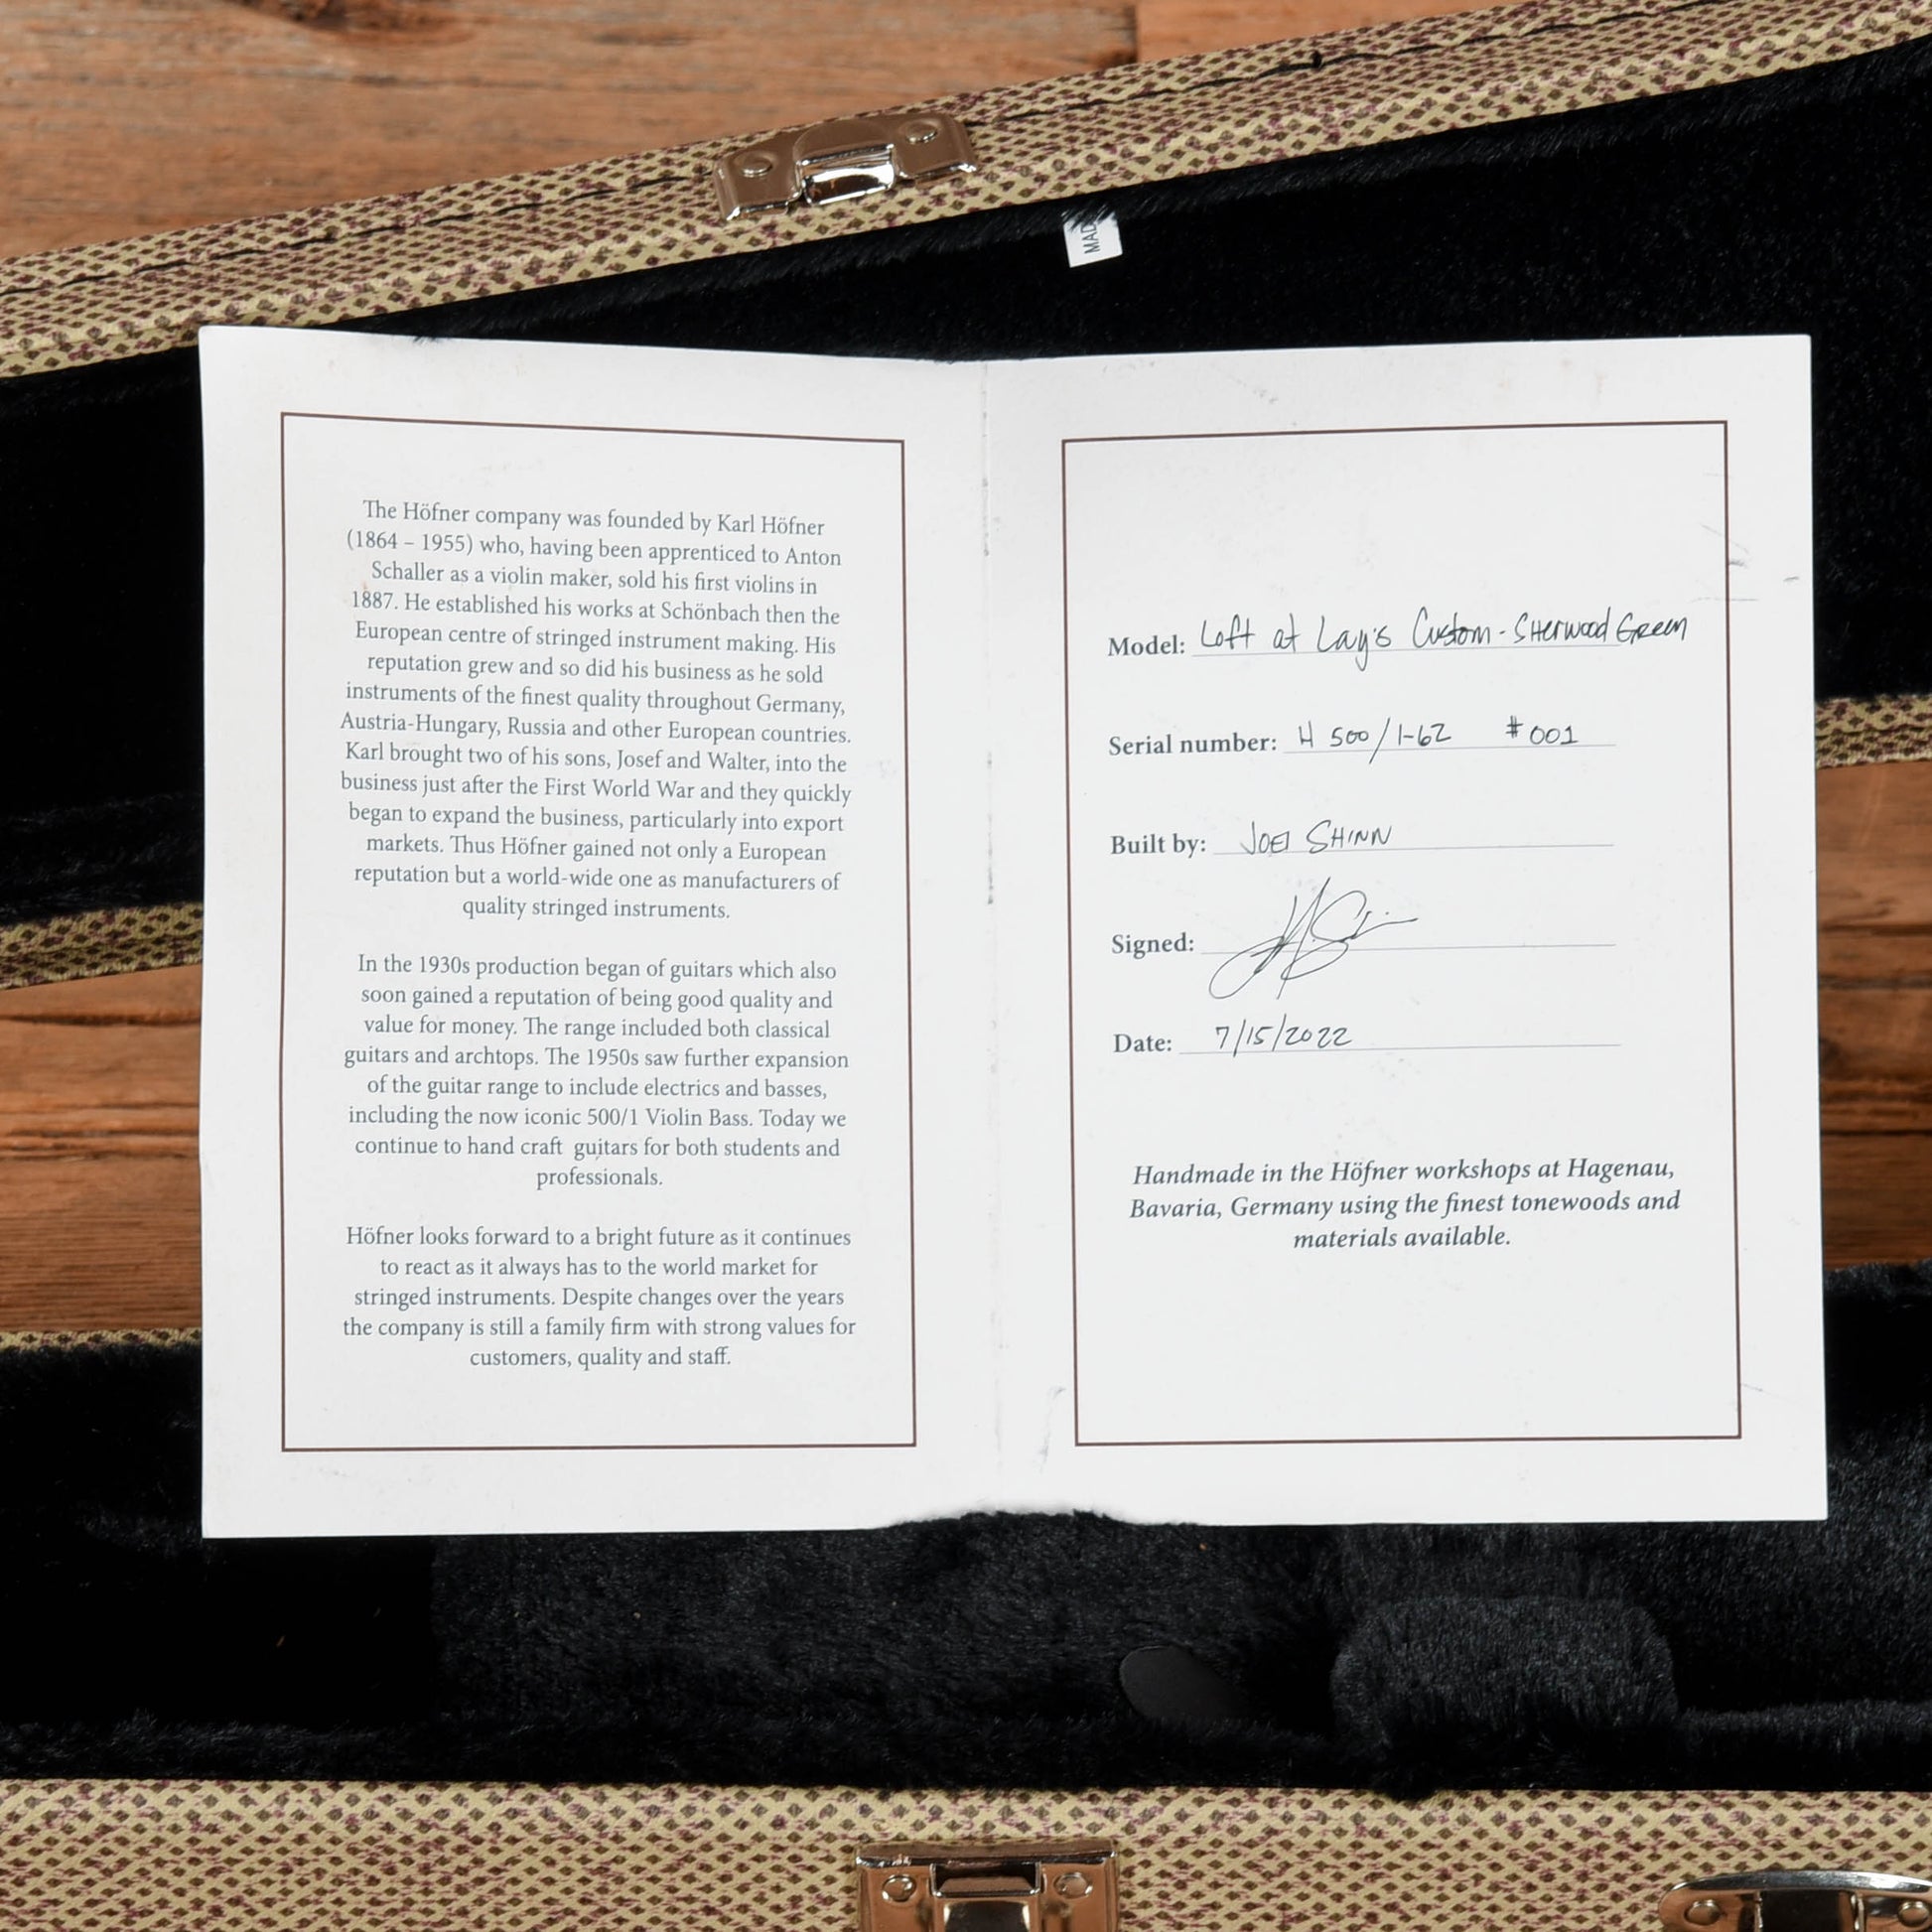 MAD
The Höfner company was founded by Karl Höfner
(1864 – 1955) who, having been apprenticed to Anton
Schaller as a violin maker, sold his first violins in
1887. He established his works at Schönbach then the
European centre of stringed instrument making. His
reputation grew and so did his business as he sold
instruments of the finest quality throughout Germany,
Austria-Hungary, Russia and other European countries.
Karl brought two of his sons, Josef and Walter, into the
business just after the First World War and they quickly
began to expand the business, particularly into export
markets. Thus Höfner gained not only a European
reputation but a world-wide one as manufacturers of
quality stringed instruments.
In the 1930s production began of guitars which also
soon gained a reputation of being good quality and
value for money. The range included both classical
guitars and archtops. The 1950s saw further expansion
of the guitar range to include electrics and basses,
including the now iconic 500/1 Violin Bass. Today we
continue to hand craft guitars for both students and
professionals.
Höfner looks forward to a bright future as it continues
to react as it always has to the world market for
stringed instruments. Despite changes over the years
the company is still a family firm with strong values for
customers, quality and staff.
Model: Loft at Lay's Custom - Sherwood Green
Serial number: H 500/1-62 #001
Built by: Joel Shinn
Signed:
Date: 7/15/2022
Handmade in the Höfner workshops at Hagenau,
Bavaria, Germany using the finest tonewoods and
materials available.